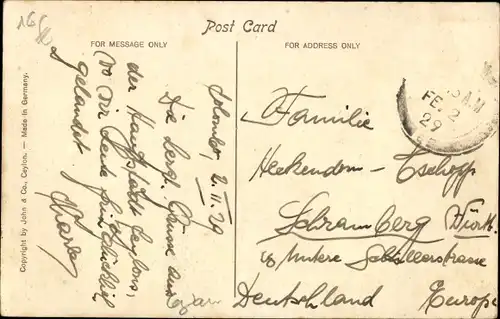 16
Post Card
FOR MESSAGE ONLY
FOR ADDRESS ONLY
Colombo, 2.II.29
Die herzl. Grüsse aus
der Hauptstadt Ceylons,
wo wir heute
gelandet
Copyright by John & Co., Ceylon. — Made in Germany.
A.M
FE 2
29
Familie
Heckendorn - Tschopp
Schramberg Württ.
Untere Schillerstrasse
Deutschland Europe